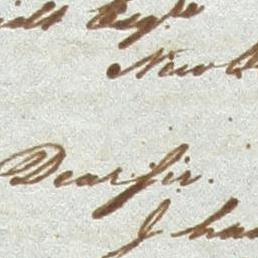 Esqre
New
Dear Sir.
I ha